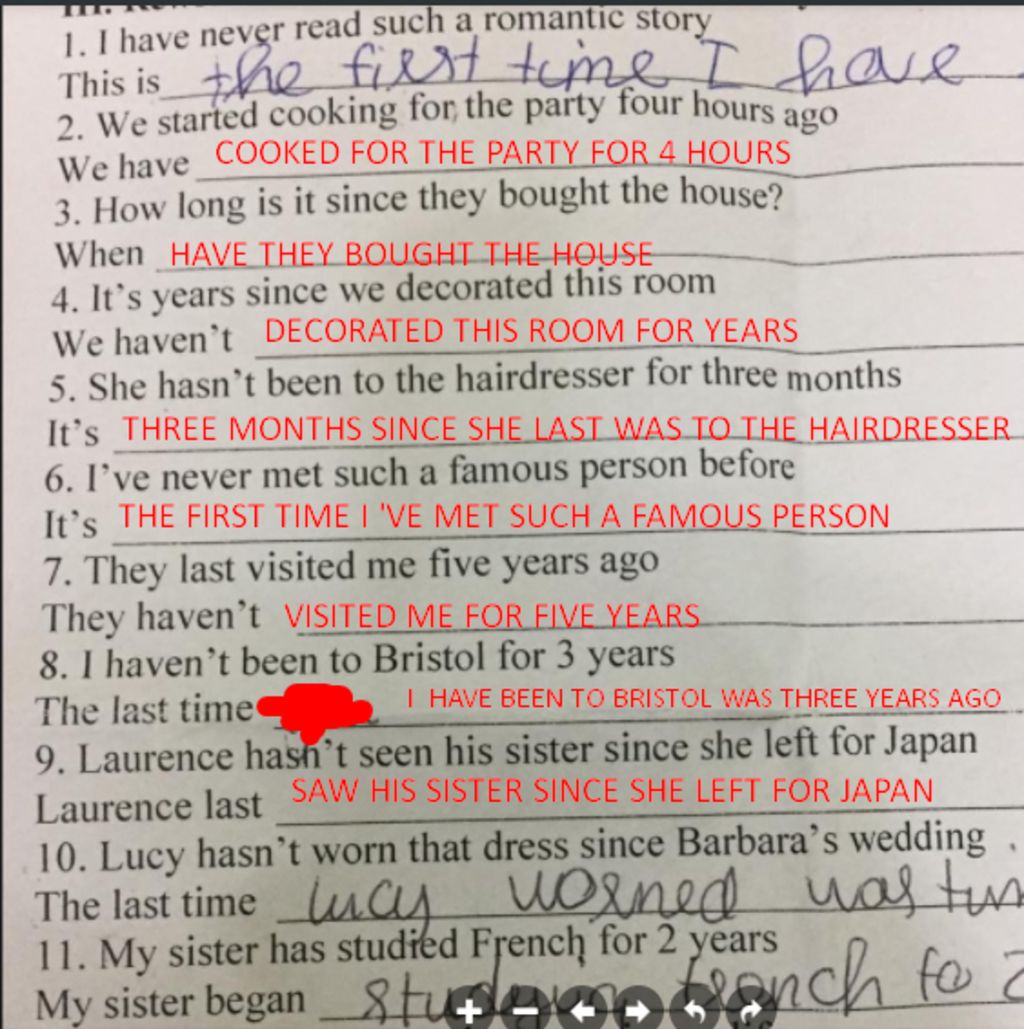 1. I have never read such a romantic story
This is the first time I have
2. We started cooking for the party four hours ago
We have COOKED FOR THE PARTY FOR 4 HOURS
3. How long is it since they bought the house?
When HAVE THEY BOUGHT THE HOUSE
4. It's years since we decorated this room
We haven't DECORATED THIS ROOM FOR YEARS
5. She hasn't been to the hairdresser for three months
It's THREE MONTHS SINCE SHE LAST WAS TO THE HAIRDRESSER
6. I've never met such a famous person before
It's THE FIRST TIME I 'VE MET SUCH A FAMOUS PERSON
7. They last visited me five years ago
They haven't VISITED ME FOR FIVE YEARS
8. I haven't been to Bristol for 3 years
The last time I HAVE BEEN TO BRISTOL WAS THREE YEARS AGO
9. Laurence hasn't seen his sister since she left for Japan
Laurence last SAW HIS SISTER SINCE SHE LEFT FOR JAPAN
10. Lucy hasn't worn that dress since Barbara's wedding
The last time Lucy worned was
11. My sister has studied French for 2 years
My sister began